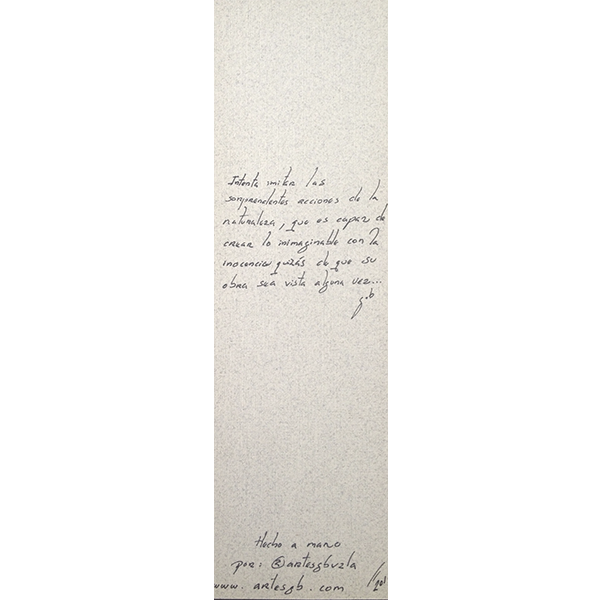 Intenta imitar las
sorprendentes acciones de la
naturaleza, que es capaz de
crear lo inimaginable con la
inocencia quizás de que su
obra sea vista alguna vez...
gob
Hecho a mano
por: @artesgbvzla
www.artesgb.com